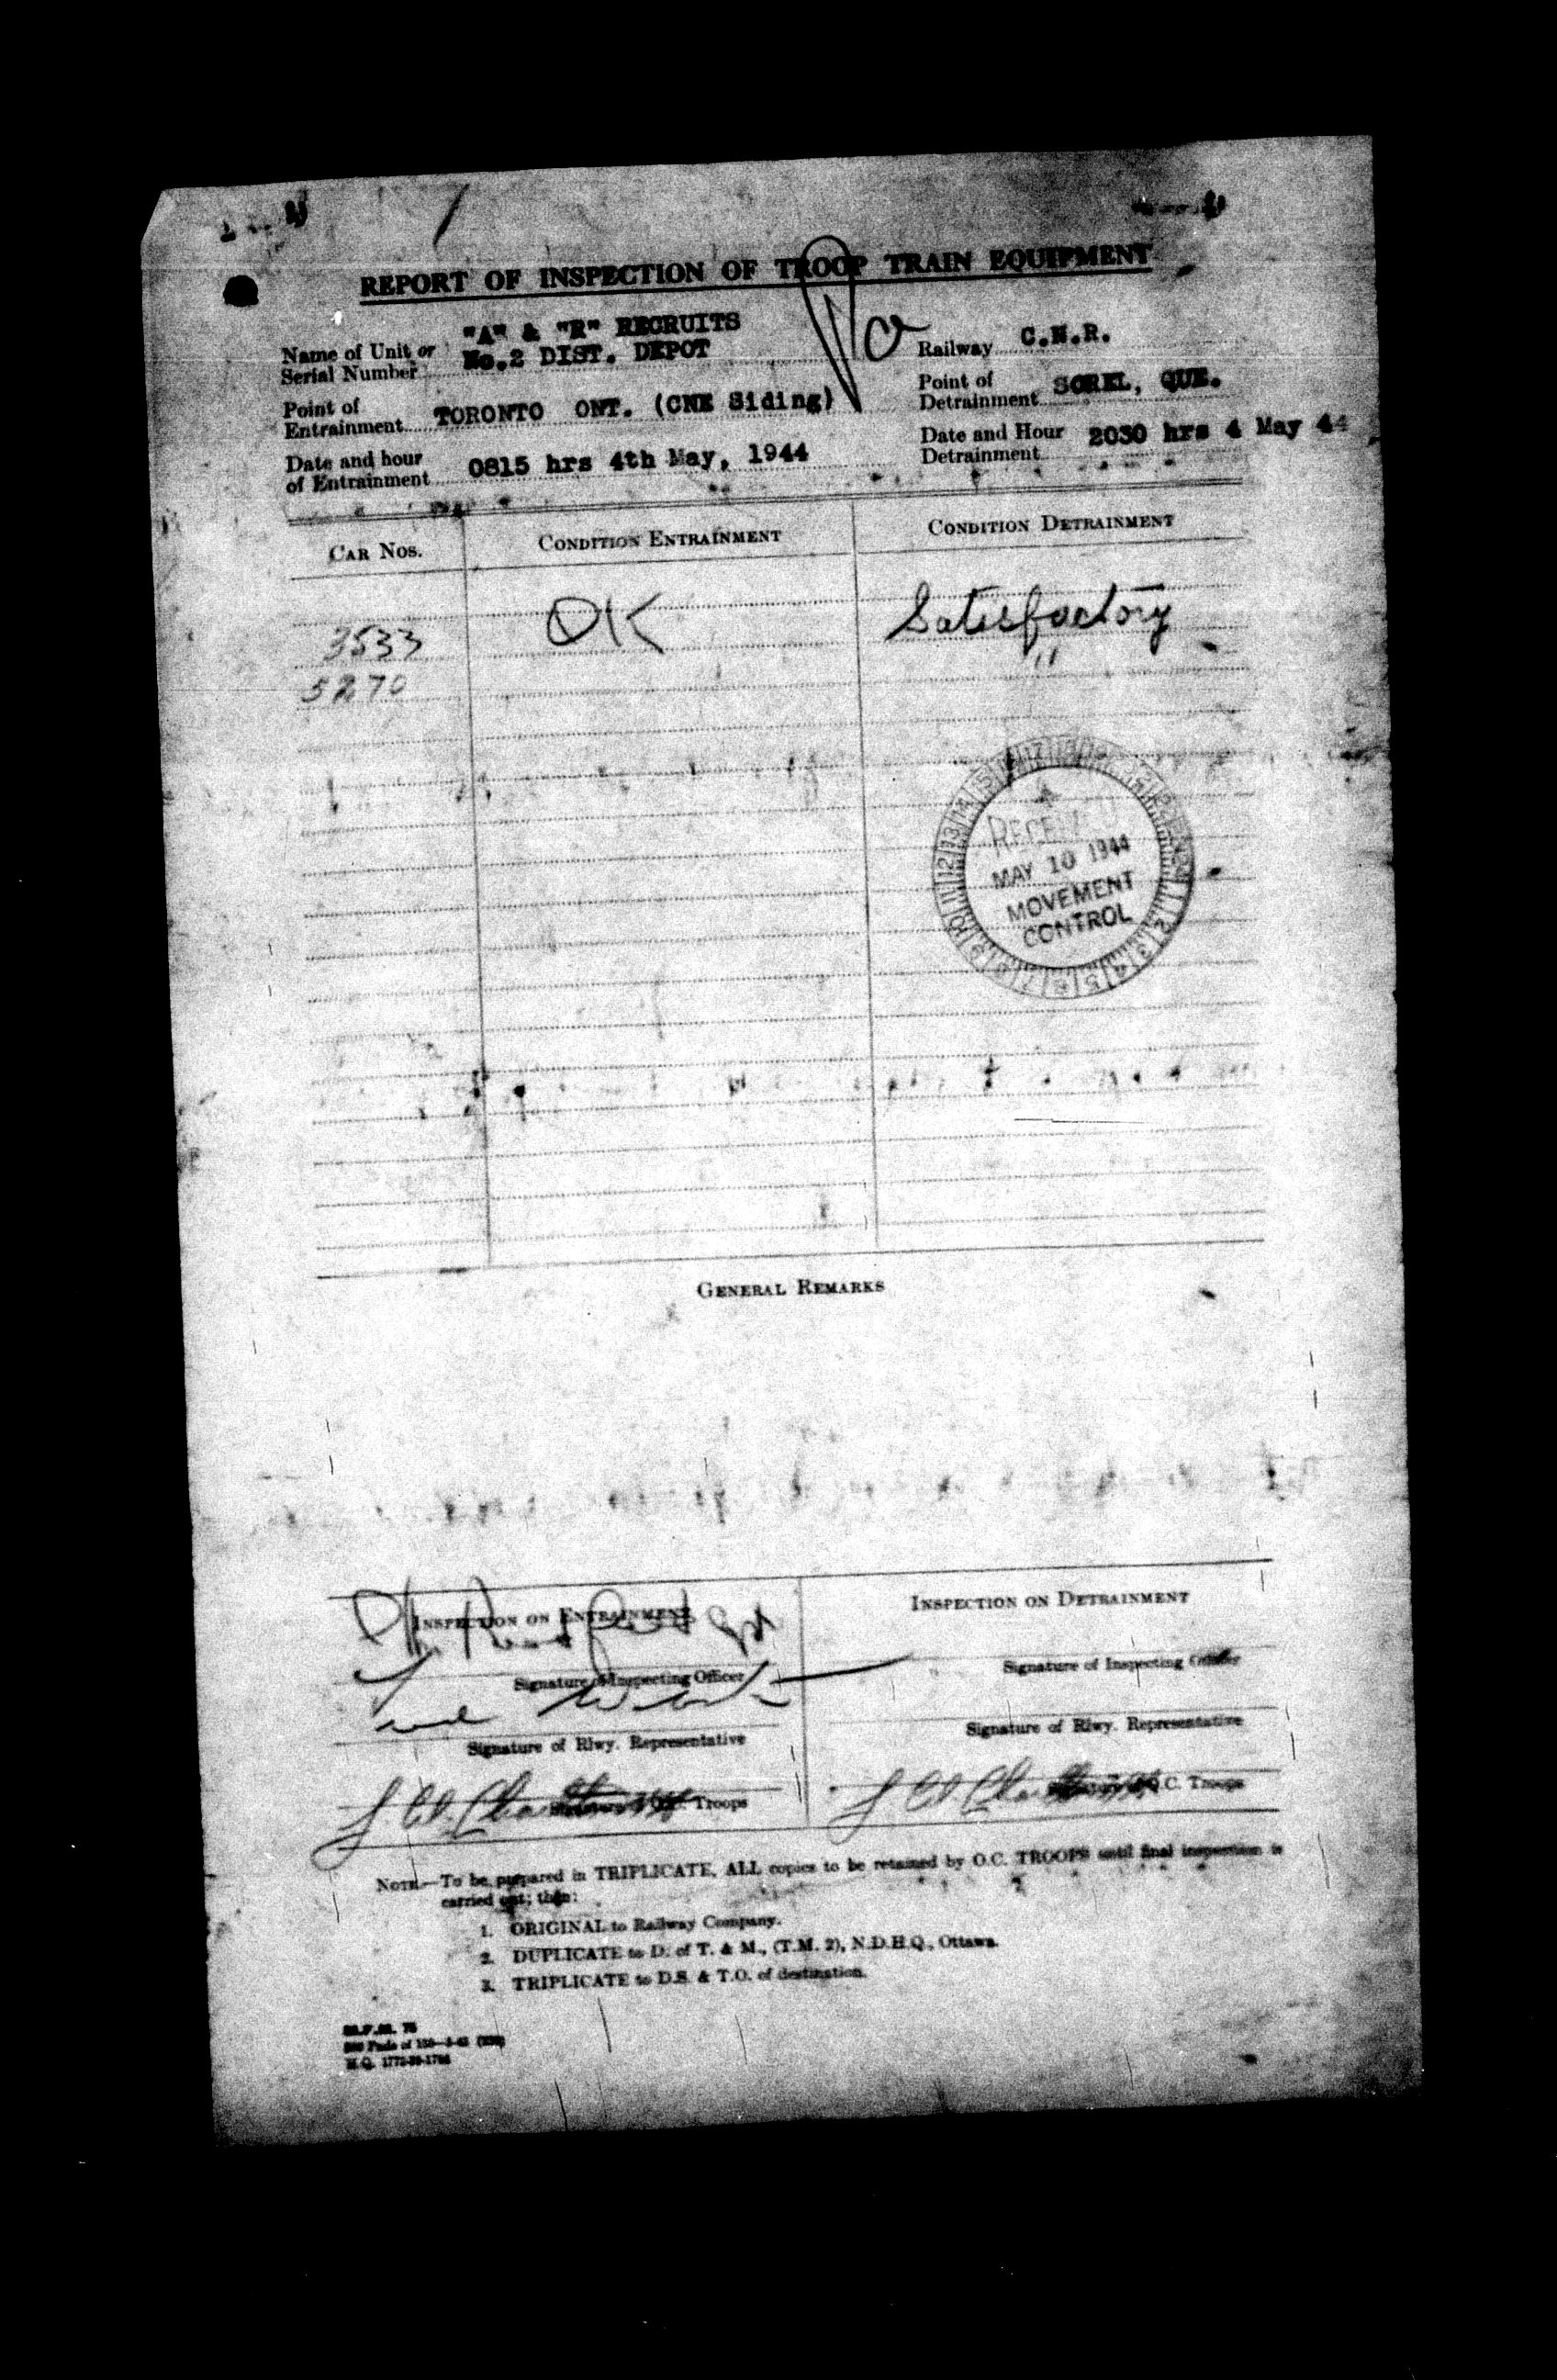 REPORT OF INSPECTION OF TROOP TRAIN EQUIPMENT
"A" & "R" RECRUITS
Name of Unit or Serial Number No.2 DIST. DEPOT
Railway C.N.R.
Point of Entrainment TORONTO ONT. (CNE Siding)
Point of Detrainment SOREL, QUE.
Date and hour of Entrainment 0815 hrs 4th May, 1944
Date and Hour Detrainment 2030 hrs 4 May 44
CAR NOS. CONDITION ENTRAINMENT CONDITION DETRAINMENT
3533 OK Satisfactory
5270 "
RECEIVED
MAY 10 1944
MOVEMENT
CONTROL
GENERAL REMARKS
INSPECTION ON ENTRAINMENT INSPECTION ON DETRAINMENT
Signature of Inspecting Officer Signature of Inspecting Officer
Signature of Rlwy. Representative Signature of Rlwy. Representative
Signature of O.C. Troops Signature of O.C. Troops
NOTE—To be prepared in TRIPLICATE, ALL copies to be retained by O.C. TROOPS until final inspection is
carried out; then:
1. ORIGINAL to Railway Company.
2. DUPLICATE to D. of T. & M., (T.M. 2), N.D.H.Q., Ottawa.
3. TRIPLICATE to D.S. & T.O. of destination.